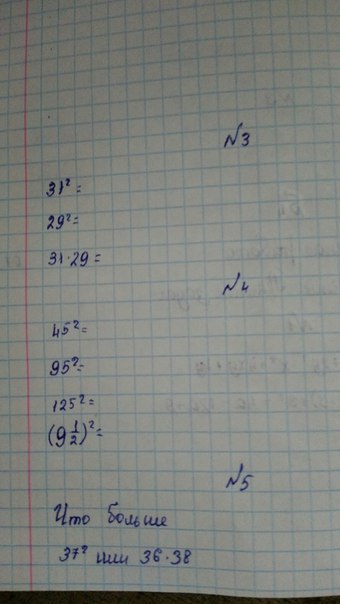 №3
31²=
29²=
31·29=
№4
45²=
95²=
125²=
(9 1/2)²=
№5
Что больше
37² или 36·38